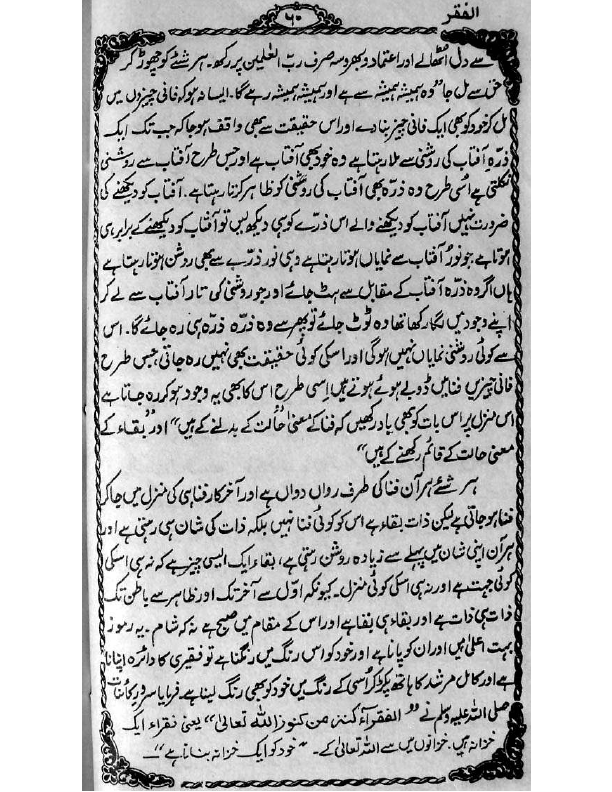 الفقر
۶۰
سے دل اُٹھالے اور اعتماد و بھروسہ صرف ربّ العٰلمین پر رکھ۔ ہر شئے کو چھوڑ کر
حق سے مل جا " وہ ہمیشہ ہمیشہ سے ہے اور ہمیشہ ہمیشہ رہے گا۔ ایسا نہ ہو کہ فانی چیزوں میں
مل کر خود کو بھی ایک فانی چیز بنا دے اور اس حقیقت سے بھی واقف ہو جا کہ جب تک ایک
ذرّہ آفتاب کی روشنی سے ملا رہتا ہے وہ خود بھی آفتاب ہے اور جس طرح آفتاب سے روشنی
نکلتی ہے اُسی طرح وہ ذرّہ بھی آفتاب کی روشنی کو ظاہر کرتا رہتا ہے۔ آفتاب کو دیکھنے کی
ضرورت نہیں آفتاب کو دیکھنے والے اس ذرّے کو ہی دیکھ لیں تو آفتاب کو دیکھنے کے برابر ہی
ہوتا ہے جو نُور آفتاب سے نمایاں ہوتا رہتا ہے وہی نور ذرّے سے بھی روشن ہوتا رہتا ہے
ہاں اگر وہ ذرّہ آفتاب کے مقابل سے ہٹ جائے اور جو روشنی کی تار آفتاب سے لے کر
اپنے وجود میں لگا رکھا تھا وہ ٹوٹ جائے تو پھر سے وہ ذرّہ ذرّہ ہی رہ جائے گا۔ اس
سے کوئی روشنی نمایاں نہیں ہو گی اور اسکی کوئی حقیقت بھی نہیں رہ جاتی، جس طرح
فانی چیزیں فنا میں ڈوبے ہوئے ہوتے ہیں اِسی طرح اس کا بھی یہ وجود ہو کر رہ جاتا ہے
اس منزل پر اس بات کو بھی یاد رکھیں کہ فنا کے معنی "حالت کے بدلنے کے ہیں" اور "بقاء کے
معنی حالت کے قائم رکھنے کے ہیں"
ہر شئے ہر آن فنا کی طرف رواں دواں ہے اور آخر کار فنا ہی کی منزل میں جا کر
فنا ہو جاتی ہے لیکن ذات بقاء ہے اس کو کوئی فنا نہیں بلکہ ذات کی شان سی رہتی ہے اور
ہر آن اپنی شان میں پہلے سے زیادہ روشن رہتی ہے، بقاء ایک ایسی چیز ہے کہ نہ ہی اسکی
کوئی جہت ہے اور نہ ہی اسکی کوئی منزل۔ کیونکہ اوّل سے آخر تک اور ظاہر سے باطن تک
ذات ہی ذات ہے اور بقاء ہی بقا ہے اور اس کے مقام میں صبح ہے نہ کہ شام۔ یہ رموز
بہت اعلیٰ ہیں اور ان کو پانا ہے اور خود کو اس رنگ میں رنگنا ہے تو فقیری کا دائرہ اپنانا
ہے اور کامل مرشد کا ہاتھ پکڑ کر اُسی کے رنگ میں خود کو بھی رنگ لینا ہے۔ فرمایا سرورِ کائنات
صلی اللہ علیہ وسلم نے " الفقرآء کنز من کنوز اللہ تعالیٰ" یعنی فقراء ایک
خزانہ ہیں۔ خزانوں میں سے اللہ تعالیٰ کے۔ "خود کو ایک خزانہ بنانا ہے"